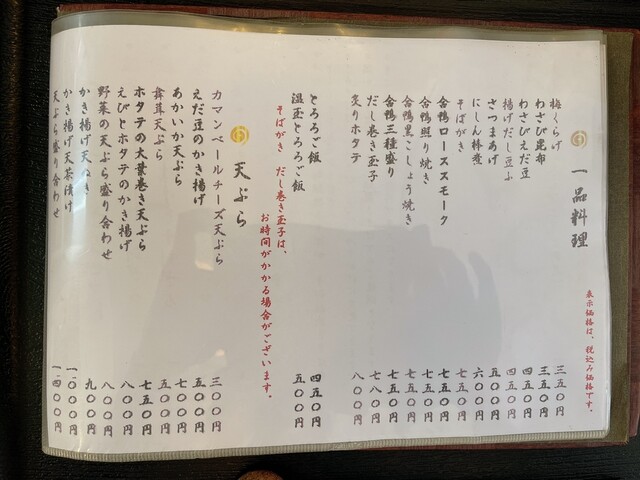 表示価格は、税込み価格です。
一品料理
梅くらげ 三五〇円
わさび昆布 三五〇円
わさびえだ豆 四五〇円
揚げだし豆ふ 四五〇円
さつまあげ 五〇〇円
にしん棒煮 六〇〇円
そばがき 七五〇円
合鴨ローススモーク 七五〇円
合鴨照り焼き 七五〇円
合鴨黒こしょう焼き 七五〇円
合鴨三種盛り 七五〇円
だし巻き玉子 七八〇円
炙りホタテ 八〇〇円
とろろご飯 四五〇円
温玉とろろご飯 五〇〇円
そばがき だし巻き玉子は、
お時間がかかる場合がございます。
天ぷら
カマンベールチーズ天ぷら 三〇〇円
えだ豆のかき揚げ 五〇〇円
あかいか天ぷら 七〇〇円
舞茸天ぷら 五〇〇円
ホタテの大葉巻き天ぷら 七五〇円
えびとホタテのかき揚げ 八〇〇円
野菜の天ぷら盛り合わせ 八〇〇円
かき揚げ天ぬき 九〇〇円
かき揚げ天茶漬け 一、〇〇〇円
天ぷら盛り合わせ 一、四〇〇円